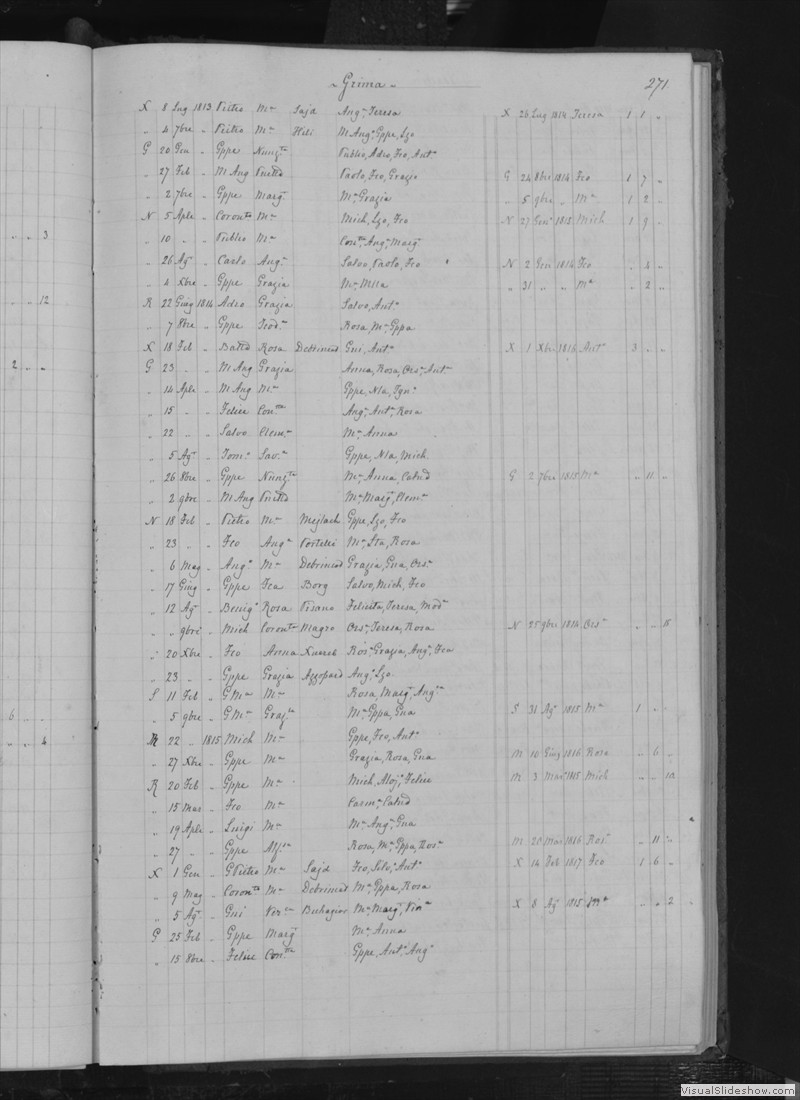 3
12
2
6
4
Grima
271
X 8 Lug 1813 Pietro Mª Sajd Angª Teresa X 26 Lug 1814 Teresa 1 1 "
" 4 7bre " Pietro Mª Hili M Angª, Gppe, Lzo
G 20 Gen " Gppe Nunzta Publio, Adeo, Fco, Antª
" 27 Feb " M Ang Paolo, Fco, Grazia G 24 8bre 1814 Fco 1 7 "
" 2 7bre " Gppe Margª Mª Grazia " 5 9bre " Mª 1 2 "
N 5 Aple " Coronta Mª Mich, Lzo, Fco N 27 Gen 1815 Mich 1 9 "
" 10 " " Publio Mª Conta, Angª, Margª
" 26 Agº " Carlo Angª Salvo, Paolo, Fco N 2 Gen 1814 Fco " 4 "
" 4 Xbre " Gppe Grazia Mª " 31 " " Mª " 2 "
R 22 Giug 1814 Adeo Grazia Salvo, Antª
" 7 8bre " Gppe Teodª Rosa, Mª, Gppa
X 18 Feb " Rosa Debrincad Gni, Antª X 1 Xbre 1816 Antª 3 " "
G 23 " " M Ang Grazia Anna, Rosa, Orsª, Antª
" 14 Aple " M Ang Mª Gppe, Nla, Ignº
" 15 " " Felice Conta Angª, Antª, Rosa
" 22 " " Salvo Clemª Mª Anna
" 5 Agº " Tomº Savª Gppe, Nla, Mich
" 26 8bre " Gppe Nunzta Mª, Anna, G 2 7bre 1815 Mª " 11 "
" 2 9bre " M Ang Mª, Margª, Clemª
N 18 Feb " Pietro Mª Mejlach Gppe, Lzo, Fco
" 23 " " Fco Angª Portelli Mª, Sta, Rosa
" 6 Mag " Angº Mª Debrincad Grazia, Gna, Orsª
" 17 Giug " Gppe Fca Borg Salvo, Mich, Fco
" 12 Agº " Benigº Rosa Pisano Felicita, Teresa, Modª
" " 9bre " Mich Coronta Magro Orsª, Teresa, Rosa N 25 9bre 1814 Orsª " " 15
" 20 Xbre " Fco Anna Xuereb Rosª, Grazia, Angª, Fca
" 23 " " Gppe Grazia Azzopard Angª, Lzo
S 11 Feb " G Mª Mª Rosa, Margª, Angª
" 5 9bre " G Mª Grazta Mª, Gppa, Gna S 31 Agº 1815 Mª 1 " "
M 22 " 1815 Mich Mª Gppe, Fco, Antª
" 27 Xbre " Gppe Mª Grazia, Rosa, Gna M 10 Giug 1816 Rosa " 6 "
R 20 Feb " Gppe Mª Mich, Alojº, Felice M 3 Mar 1815 Mich " " 10
" 15 Mar " Fco Mª Carmª,
" 19 Aple " Luigi Mª Mª, Angª, Gna
" 27 " " Gppe Rosa, Mª, Gppa, Rosª M 20 Mar 1816 Rosª " 11 "
X 1 Gen " G Pietro Mª Sajd Fco, Antº X 14 Feb 1817 Fco 1 6 "
" 9 Mag " Coronto Mª Debrincad Mª, Gppa, Rosa
" 5 Agº " Gni Buhagiar Mª, Margª, X 8 Agº 1815 " " 2
G 25 Feb " Gppe Margª Mª Anna
" 15 8bre " Felice Conta Gppe, Antº, Angº
VisualSlideshow.com